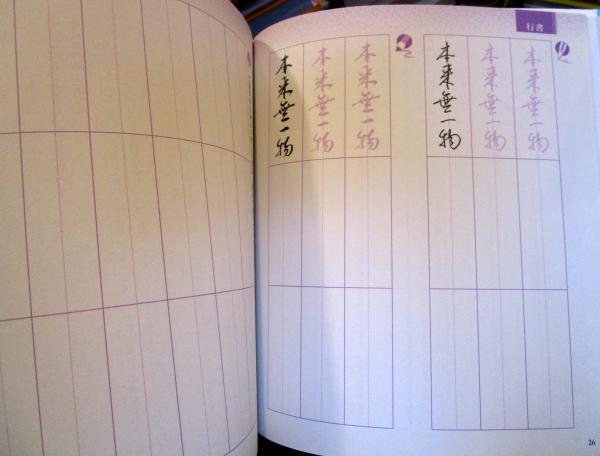 行書
本来無一物
本来無一物
本来無一物
本来無一物
本来無一物
本来無一物
26